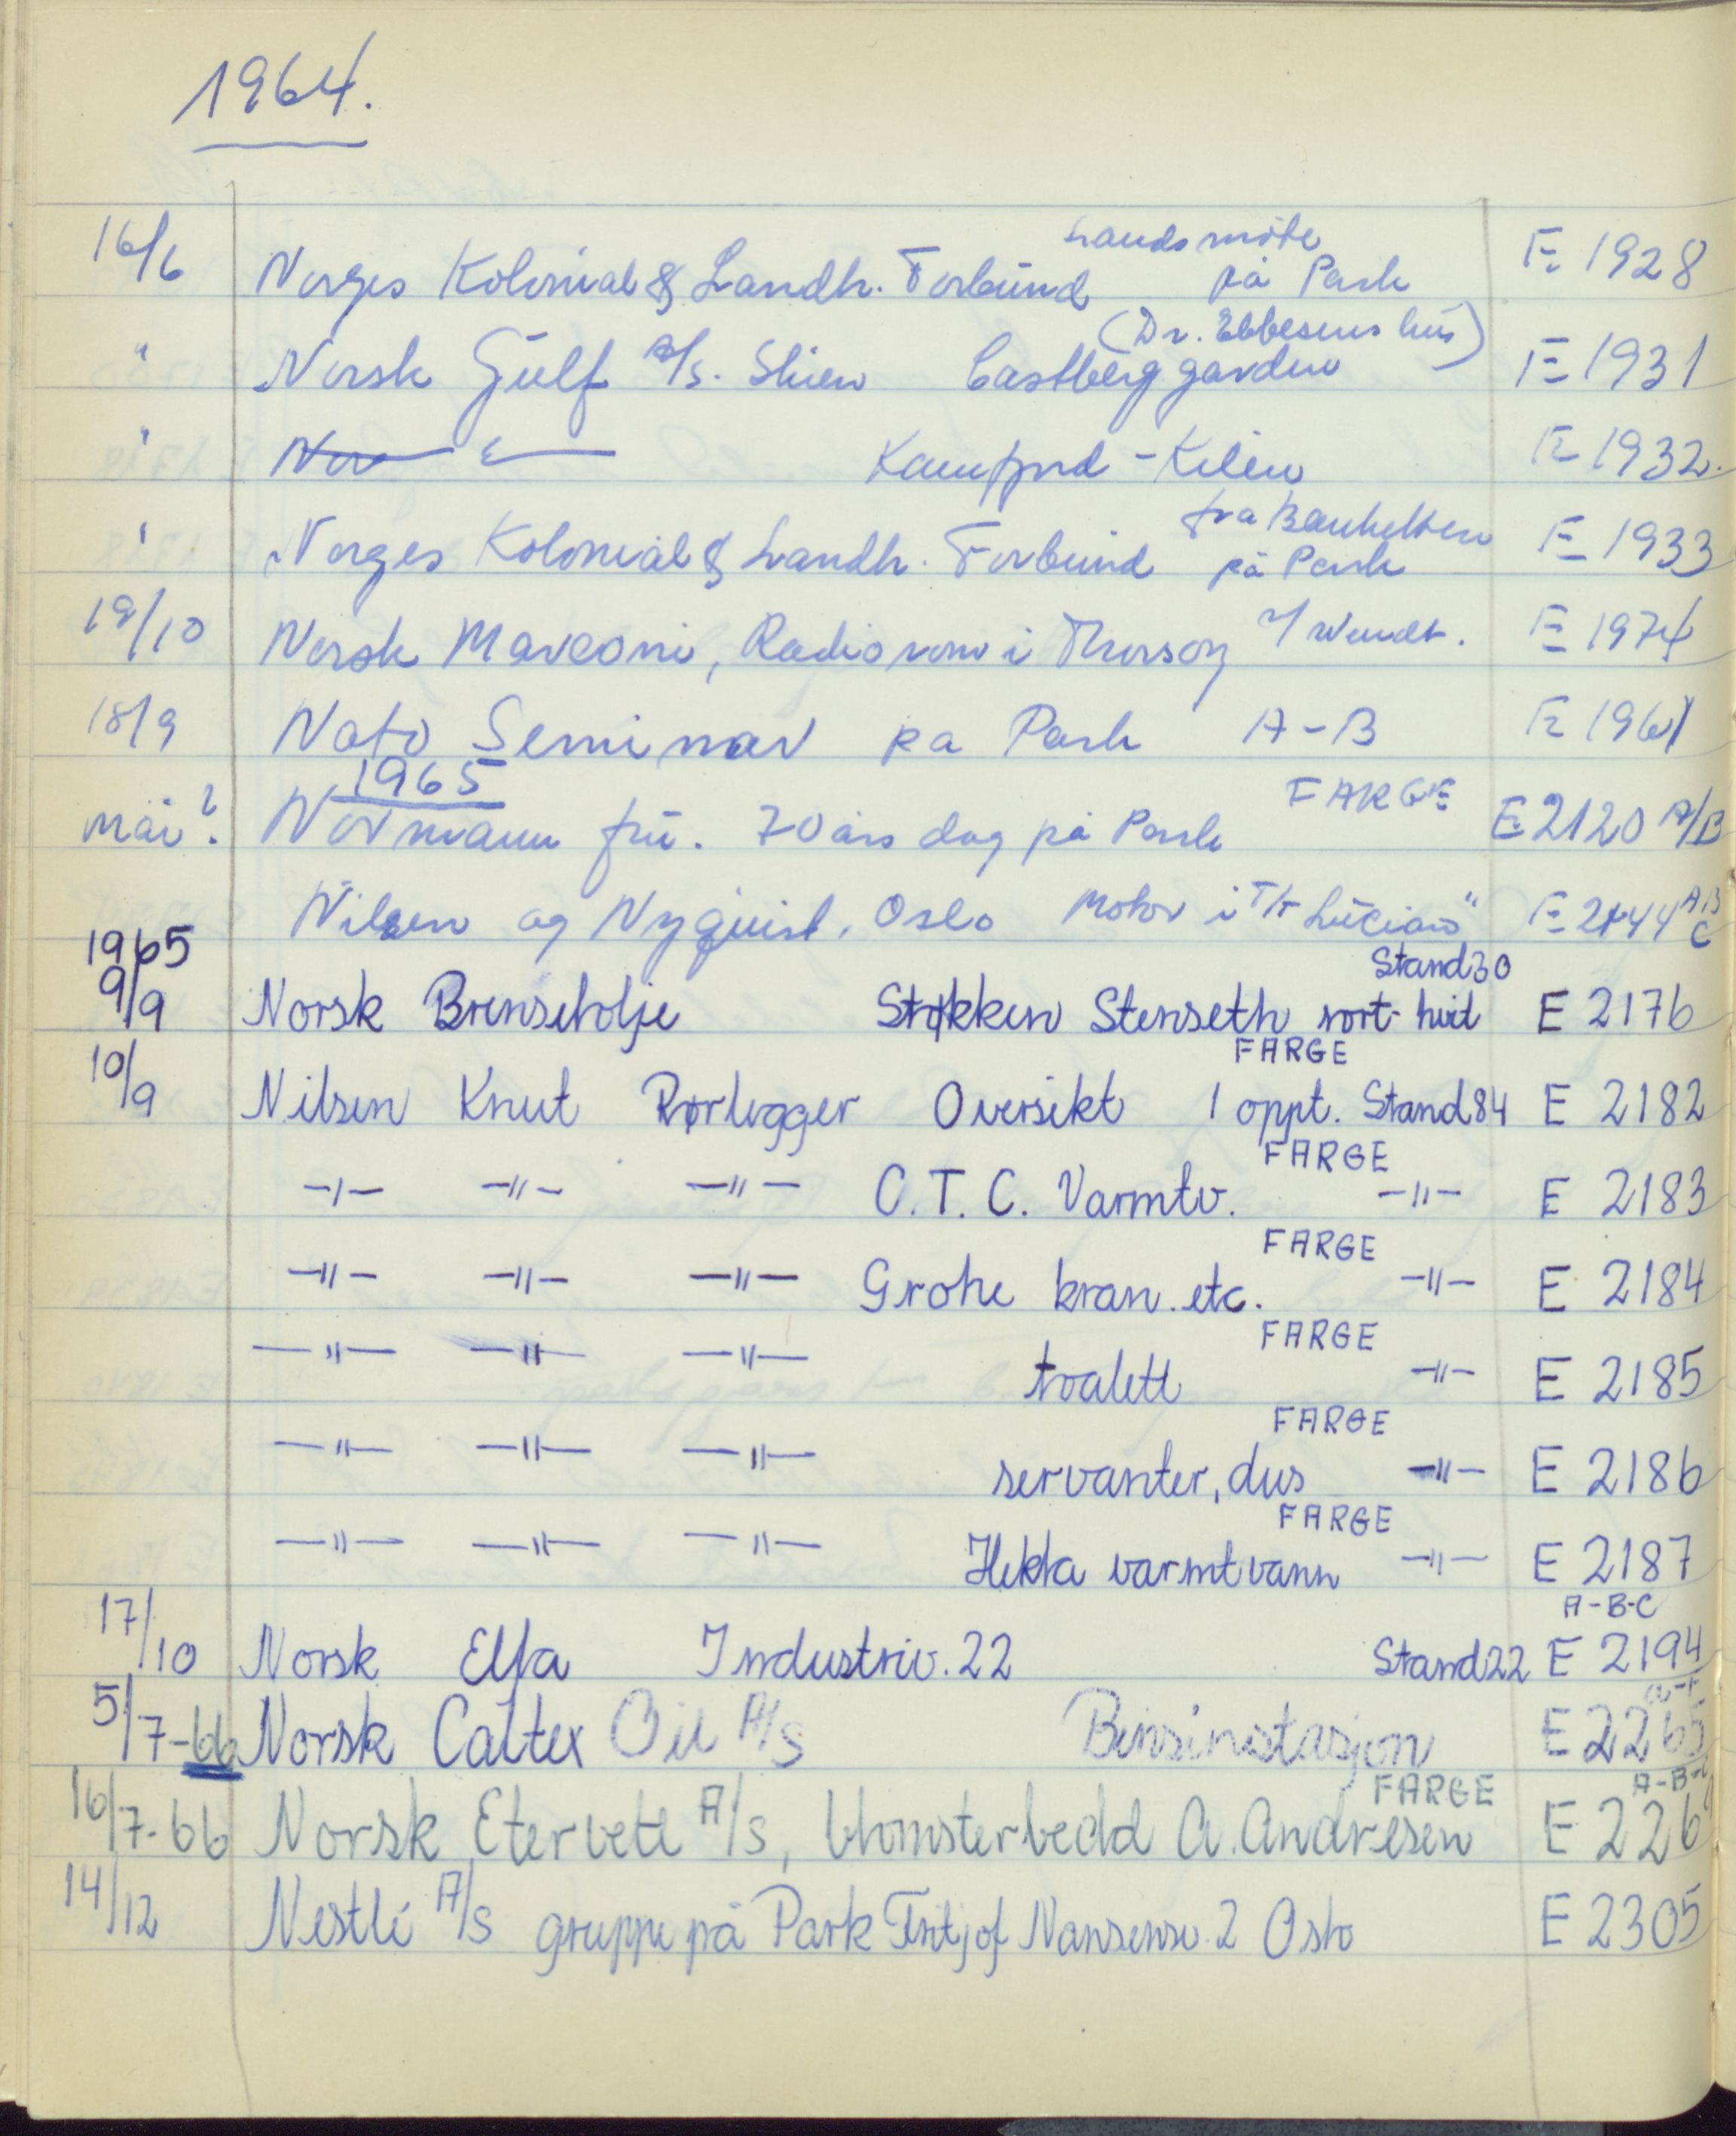 1964.
16/6 Norges Kolonial & Landh. Forbund Landsmöte på Park E 1928
" Norsk Gulf A/S. Skien Castberggarden (Dr. Ebbesens hus) E 1931
" Kamfjord - Kilen E 1932.
" Norges Kolonial & Landh. Forbund fra Banketten på Park E 1933
19/10 Norsk Marconi, Radiorom i Thorsøy E 1974
18/9 Nato Seminar på Park A-B E 1961
1965
mai? Normann fru. 70 års dag på Park FARGE E 2120 A/B
Nilsen og Nyquist, Oslo Motor i T/T Luciano" E 2144 A B C
1965
9/9 Norsk Brenselolje Stokken Stenseth sort-hvit Stand 30 E 2176
10/9 Nilsen Knut Rørlegger Oversikt 1 oppt. FARGE Stand 84 E 2182
-"- -"- -"- C.T.C. Varmtv. FARGE -"- E 2183
-"- -"- -"- Grohe kran. etc. FARGE -"- E 2184
-"- -"- -"- toalett FARGE -"- E 2185
-"- -"- -"- servanter, dus FARGE -"- E 2186
-"- -"- -"- Hekta varmtvann FARGE -"- E 2187
17/10 Norsk Elfa Industriv. 22 Stand 22 E 2194 A-B-C
5/7-66 Norsk Caltex Oil A/S Bensinstasjon E 2265
16/7-66 Norsk Eternett A/S, blomsterbedd A. Andresen FARGE E 226 A-B-C
14/12 Nestlé A/S gruppe på Park Fritjof Nansensv. 2 Oslo E 2305